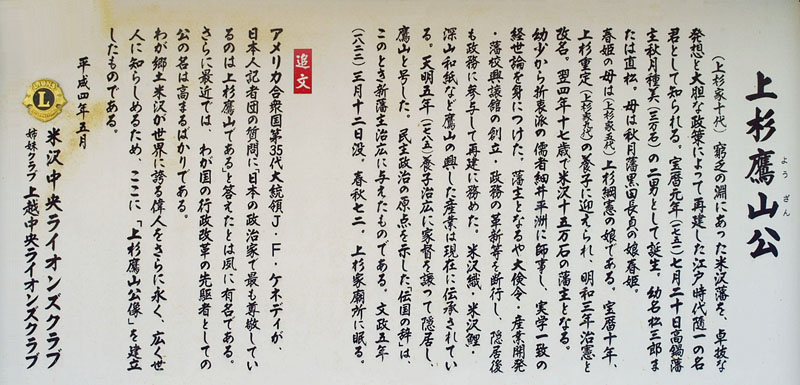 上杉鷹山公
ようざん
(上杉家十代) 窮乏の淵にあった米沢藩を、卓抜な
発想と大胆な政策によって再建した江戸時代随一の名
君として知られる。宝暦元年(一七五一)七月二十日高鍋藩
主秋月種美(三万石)の二男として誕生。幼名松三郎ま
たは直松。母は秋月藩黒田長貞の娘春姫。
春姫の母は(上杉家五代)上杉綱憲の娘である。宝暦十年、
上杉重定(上杉家九代)の養子に迎えられ、明和三年治憲と
改名。翌四年十七歳で米沢十五万石の藩主となる。
幼少から折衷派の儒者細井平洲に師事し、実学一致の
経世論を身につけた。藩主となるや大倹令・産業開発
・藩校興譲館の創立・政務の革新等を断行し、隠居後
も政務に参与して再建に務めた。米沢織・米沢鯉・
深山和紙など鷹山の興した産業は現在に伝承されてい
る。天明五年(一七八五)養子治広に家督を譲って隠居し、
鷹山と号した。民主政治の原点を示した「伝国の辞」は、
このとき新藩主治広に与えたものである。文政五年
(一八二二)三月十二日没。春秋七二。上杉家廟所に眠る。
追文
アメリカ合衆国第35代大統領J・F・ケネディが、
日本人記者団の質問に「日本の政治家で最も尊敬してい
るのは上杉鷹山である」と答えたとは夙に有名である。
さらに最近では、わが国の行政改革の先駆者としての
公の名は高まるばかりである。
わが郷土米沢が世界に誇る偉人をさらに永く、広く世
人に知らしめるため、ここに「上杉鷹山公像」を建立
したものである。
平成四年五月
LIONS
L
米沢中央ライオンズクラブ
姉妹クラブ 上越中央ライオンズクラブ